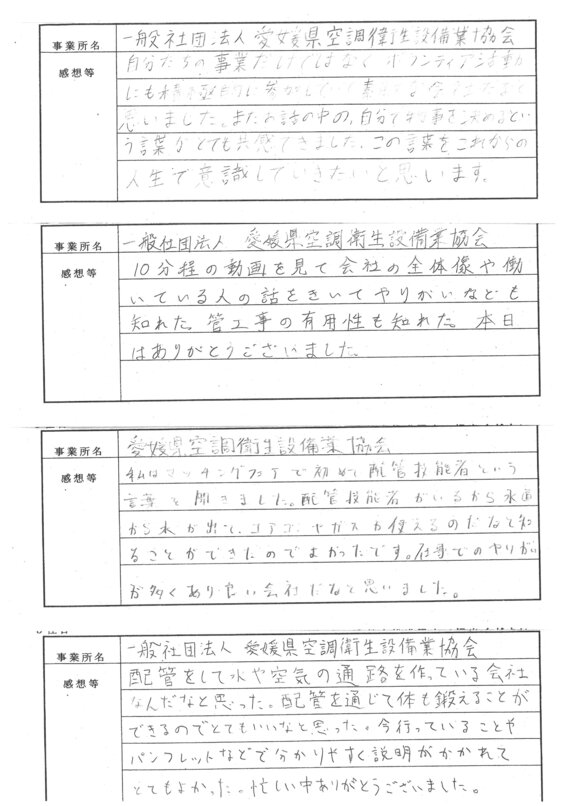 事業所名 一般社団法人 愛媛県空調衛生設備業協会
感想等 自分たちの事業だけではなくボランティア活動
にも積極的に参加していて素敵な会社だなと
思いました。またお話の中の、自分で物事を決めるとい
う言葉がとても共感できました。この言葉をこれからの
人生で意識していきたいと思います。
事業所名 一般社団法人 愛媛県空調衛生設備業協会
感想等 10分程の動画を見て会社の全体像や働
いている人の話をきいてやりがいなども
知れた。管工事の有用性も知れた。本日
はありがとうございました。
事業所名 愛媛県空調衛生設備業協会
感想等 私はマッチングフェアで初めて配管技能者という
言葉を聞きました。配管技能者がいるから水道
から水が出て、エアコンやガスが使えるのだなと知
ることができたのでよかったです。仕事でのやりがい
が多くあり良い会社だなと思いました。
事業所名 一般社団法人 愛媛県空調衛生設備業協会
感想等 配管をして水や空気の通路を作っている会社
なんだなと思った。配管を通じて体も鍛えることが
できるのでとてもいいなと思った。今行っていることや
パンフレットなどで分かりやすく説明がかかれて
とてもよかった。忙しい中ありがとうございました。